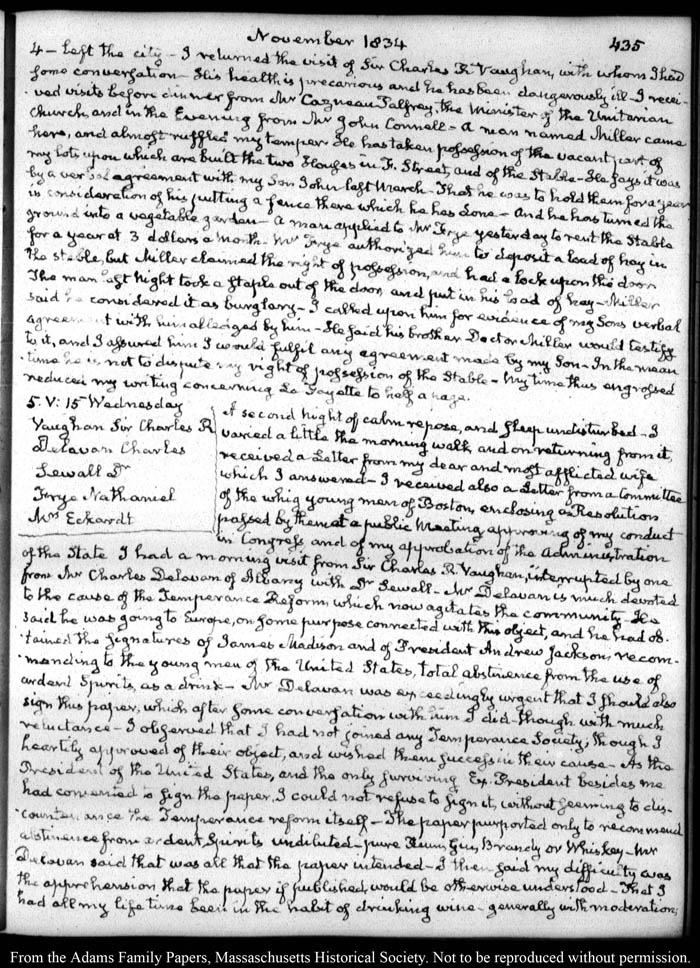 November 1834
435
4 – left the city – I returned the visit of Sir Charles R. Vaughan, with whom I had
some conversation – His health is precarious and he has been dangerously ill – I recei-
ved visits before dinner from Mr Cazneau Palfrey, the Minister of the Unitarian
Church, and in the Evening from Mr John Connell – A man named Miller came
here, and almost ruffled my temper – He has taken possession of the vacant part of
my lots upon which are built the two Houses in F. Street, and of the Stable – He says it was
by a verbal agreement with my Son John last March – That he was to hold them for a year
in consideration of his putting a fence there which he has done – And he has turned the
ground into a vegetable garden – A man applied to Mr Frye yesterday to rent the Stable
for a year at 3 dollars a Month – Mr Frye authorized him to deposit a load of hay in
the stable, but Miller claimed the right of possession, and had a lock upon the door
The man last night took a staple out of the door, and put in his load of hay – Miller
said he considered it as burglary – I called upon him for evidence of my Sons verbal
agreement with him alledged by him – He said his brother Doctor Miller would testify
to it, and I assured him I would fulfil any agreement made by my Son – In the mean
time he is not to dispute my right of possession of the Stable – My time thus engrossed
reduced my writing concerning La Fayette to half a page.
5. V: 15 Wednesday
Vaughan Sir Charles R
Delavan Charles
Sewall Dr
Frye Nathaniel
Mrs Eckardt
A second night of calm repose, and sleep undisturbed – I
varied a little the morning walk, and on returning from it,
received a Letter from my dear and most afflicted wife
which I answered – I received also a Letter from a Committee
of the whig young men of Boston, enclosing a Resolution
passed by them at a public Meeting, approving of my conduct
in Congress and of my approbation of the administration
of the State I had a morning visit from Sir Charles R. Vaughan, interrupted by one
from Mr Charles Delavan of Albany with Dr Sewall – Mr Delavan is much devoted
to the cause of the Temperance Reform, which now agitates the community – He
said he was going to Europe, on some purpose connected with this object, and he had ob-
tained the signatures of James Madison and of President Andrew Jackson, recom-
mending to the young men of the United States, total abstinence from the use of
ardent Spirits, as a drink – Mr Delavan was exceedingly urgent that I should also
sign this paper, which after some conversation with him I did – though with much
reluctance – I observed that I had not joined any Temperance Society; though I
heartily approved of their object, and wished them success in their cause – As the
President of the United States, and the only surviving Ex-President besides me
had consented to sign the paper, I could not refuse to sign it, without seeming to dis-
countenance the Temperance reform itself – The paper purported only to recommend
abstinence from ardent Spirits undiluted – pure Rum, Gin, Brandy or Whiskey – Mr
Delavan said that was all that the paper intended – I then said my difficulty was
the apprehension that the paper if published, would be otherwise understood – That I
had all my life time been in the habit of drinking wine – generally with moderation;
From the Adams Family Papers, Massachusetts Historical Society. Not to be reproduced without permission.